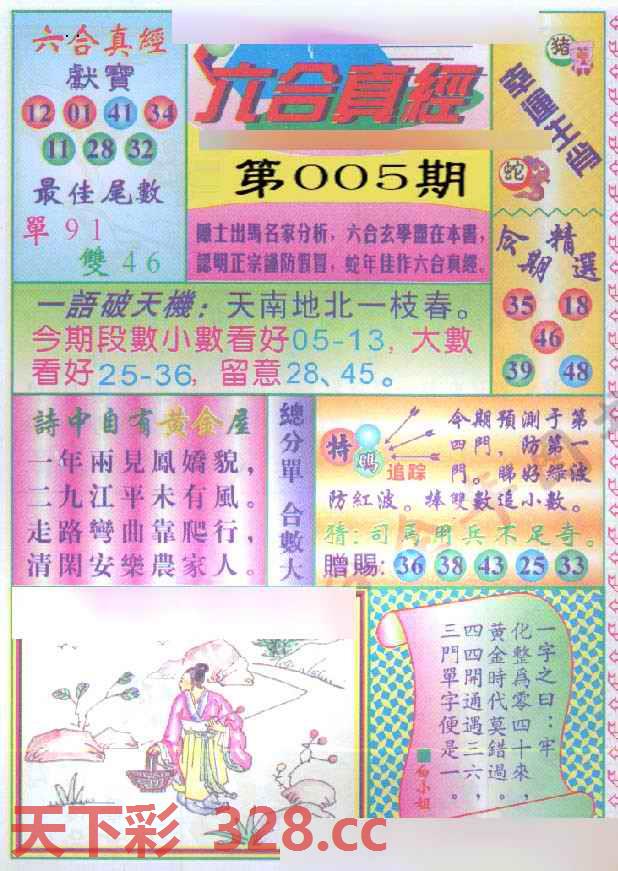 六合真經
獻寶
12 01 41 34
11 28 32
最佳尾數
單 9 1
雙 4 6
六合真經
第005期
隱士出馬名家分析，六合玄學盡在本書，
認明正宗謹防假冒，蛇年佳作六合真經。
豬
蛇
今期精選
35 18
46
39 48
一語破天機：天南地北一枝春。
今期段數小數看好05-13，大數
看好25-36，留意28、45。
詩中自有黃金屋
一年兩見鳳嬌貌，
二九江平未有風。
走路彎曲靠爬行，
清閑安樂農家人。
總分單 合數大
特碼
追踪
今期預測于第
四門，防第一
門。睇好綠波
防紅波。捧雙數追小數。
猜：司馬用兵不足奇。
贈賜：36 38 43 25 33
一字之曰：牢
化整爲零四十來，
黃金時代莫錯過。
四四開通遇三六，
三門單字便是一。
白小姐
天下彩 328.cc